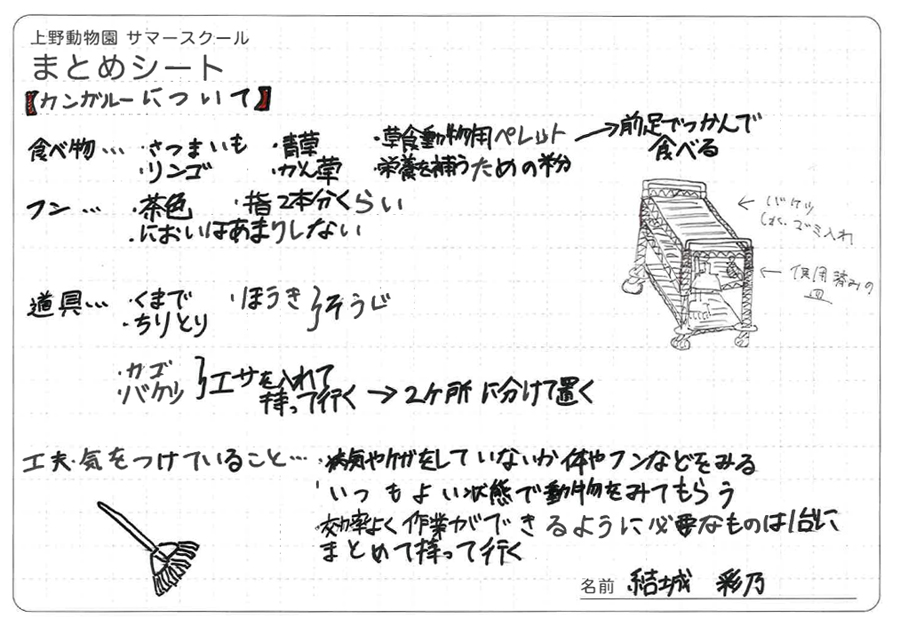 上野動物園 サマースクール
まとめシート
【カンガルーについて】
食べ物… ・さつまいも ・青草 ・草食動物用ペレット →前足でつかんで
・リンゴ ・かん草 栄養を補うための粉 食べる
フン… ・茶色 ・指2本分くらい
・においはあまりしない
←バケツ
ゴミ入れ
←使用済みの
皿
道具… ・くまで ・ほうき }そうじ
・ちりとり
・カゴ
・バケツ }エサを入れて
持って行く →2ケ所に分けて置く
工夫・気をつけていること… ・病気やケガをしていないか体やフンなどをみる
いつもよい状態で動物をみてもらう
・効率よく作業ができるように必要なものは1台に
まとめて持って行く
名前 結城 彩乃